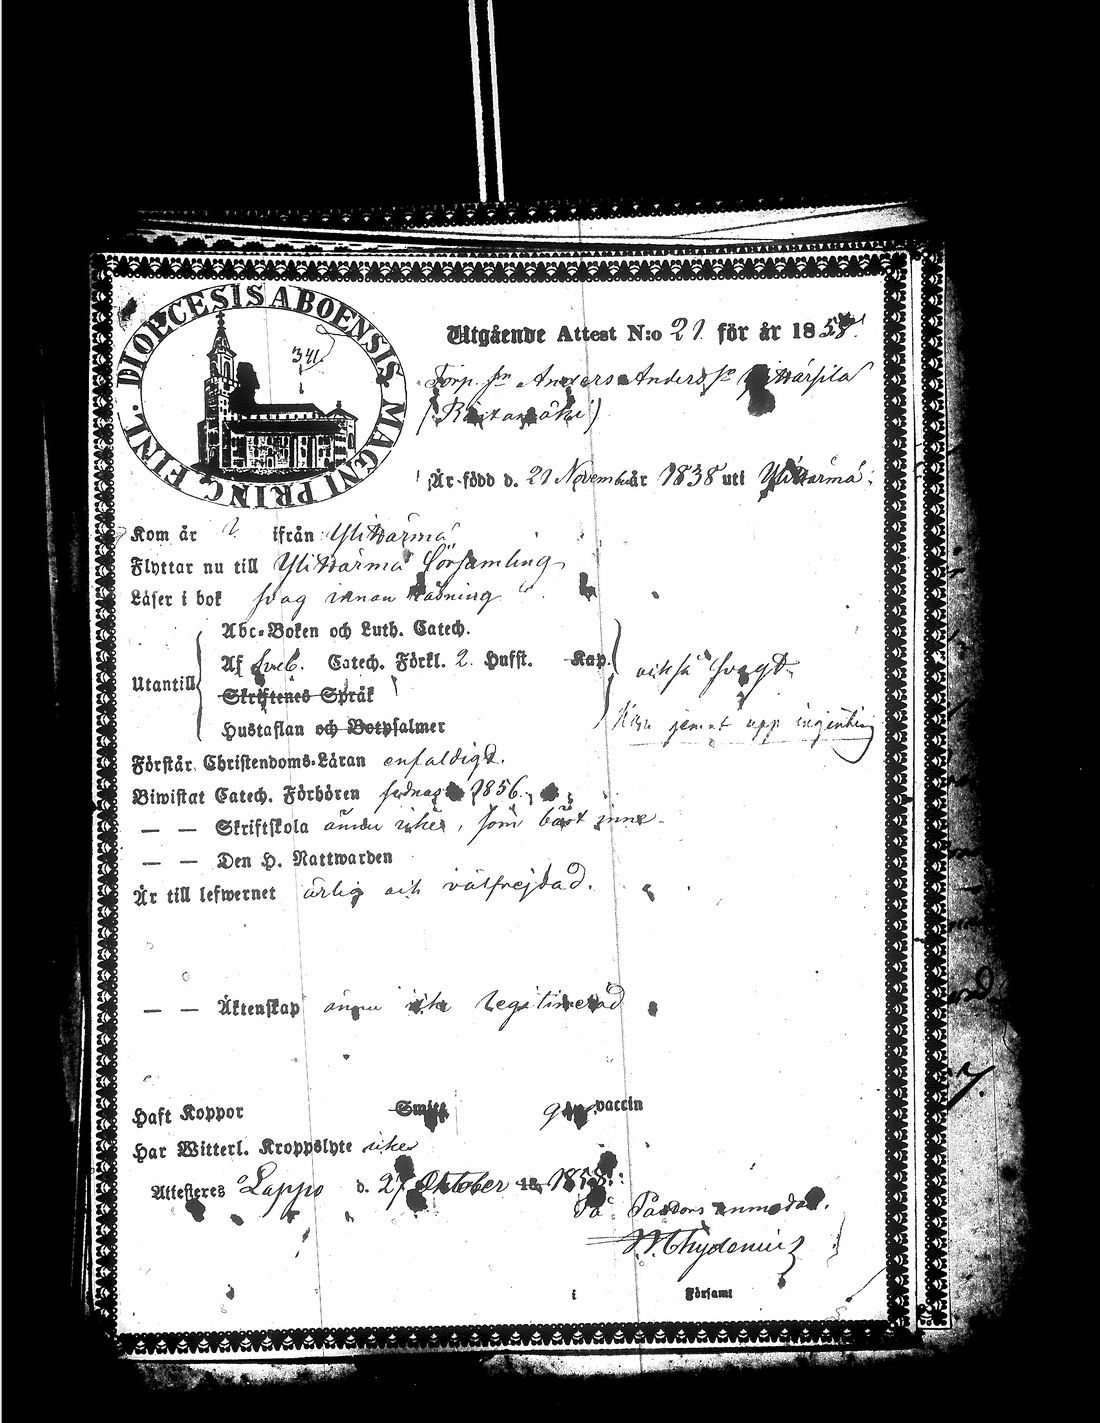 DIOECESIS ABOENSIS MAGNI PRINC. FINL.
341.
Utgående Attest N:o 21. för år 1858.
Torp. sn Anders Anders sn
Är född d. 21 November år 1838 uti Ylihärmä.
Kom år ifrån Ylihärmä
Flyttar nu till Ylihärmä Församling
Läser i bok svag innan läsning
Utantill
Abc-Boken och Luth. Catech.
Af Sveb. Catech. Förkl. 2. Hufst. Kap.
också svagt.
Skriftenes Språk
Hustaflan och Botpsalmer
jemnt upp ingenting
Förstår Christendoms-Läran enfaldigt.
Biwistat Catech. Förhören sednast 1856.
— — Skriftskola ännu icke, som bäst inne.
— — Den H. Nattwarden
Är till lefwernet ärlig och välfrejdad.
— — Äktenskap ännu icke legitimerad
Haft Koppor Smitt gm vaccin
Har Witterl. Kroppslyte icke
Attesteres Lappo d. 27 Oktober 18 1858.
På Pastors anmodan.
Chydenius
i Förfamt